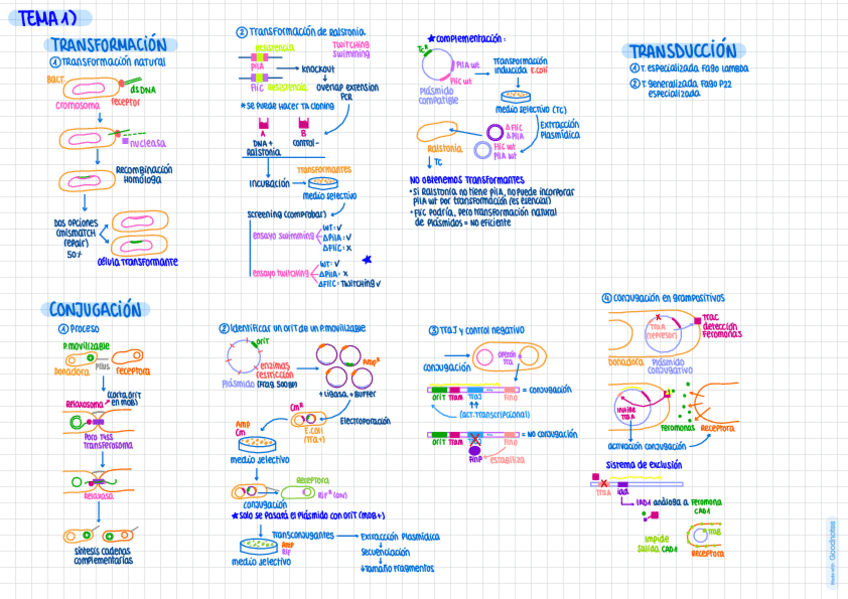 TEMA 1)
TRANSFORMACIÓN
① Transformación natural
Bact.
dsDNA
cromosoma
receptor
nucleasa
Recombinación
Homóloga
Dos opciones
(mismatch
repair)
50%
célula transformante
② Transformación de Ralstonia
Resistencia
Twitching
swimming
PilA
knockout
FliC
Resistencia
overlap extension
PCR
*se puede hacer TA cloning
A
B
DNA +
Ralstonia
control -
Transformantes
Incubación
medio selectivo
Screening (comprobar)
ensayo swimming
WT = ✓
ΔPilA = ✓
ΔFliC = X
ensayo twitching
WT = ✓
ΔPilA = X
ΔFliC = Twitching ✓
★ complementación:
TcR
PilA wt
FliC wt
Plásmido
compatible
Transformación
inducida E.coli
medio selectivo (TC)
Extracción
Plasmídica
ΔFliC
ΔPilA
FliC wt
PilA wt
Ralstonia
TC
NO OBTENEMOS TRANSFORMANTES
• Si Ralstonia no tiene pilA, no puede incorporar
PilA wt por transformación (es esencial)
• FliC podría, pero transformación natural
de plásmidos = NO eficiente
TRANSDUCCIÓN
① T. especializada Fago lambda
② T. generalizada Fago P22
especializada
CONJUGACIÓN
① Proceso
P. movilizable
Donadora
Pilus
receptora
Relaxosoma
(corta oriT
en mobs)
Poro T4SS
Transferosoma
Relaxasa
síntesis cadenas
complementarias
② Identificar un oriT de un P. movilizable
oriT
enzimas
restricción
(Frag 500bp)
Plásmido
AmpR
+ ligasa + Buffer
Electroporación
CmR
E.coli
(Tra+)
Amp
Cm
medio selectivo
Receptora
RifR
conjugación
★ Solo se pasará el plásmido con oriT (mob+)
Transconjugantes
Extracción Plasmídica
Amp
Rif
Secuenciación
medio selectivo
↓tamaño fragmentos
③ TraJ y control negativo
operón
tra
conjugación
= conjugación
oriT TraM TraJ FinO
(act. transcripcional)
= NO conjugación
oriT TraM TraJ FinO
FinP
estabiliza
④ conjugación en grampositivos
TraA
(represor)
TraC
detección
Feromonas
Donadora
Plásmido
conjugativo
inhibe
TraA
Feromonas
Receptora
activación conjugación
Sistema de exclusión
TraA
iad1
iAD1 análoga a Feromona
CAD1
impide
salida CAD1
Receptora
Goodnotes